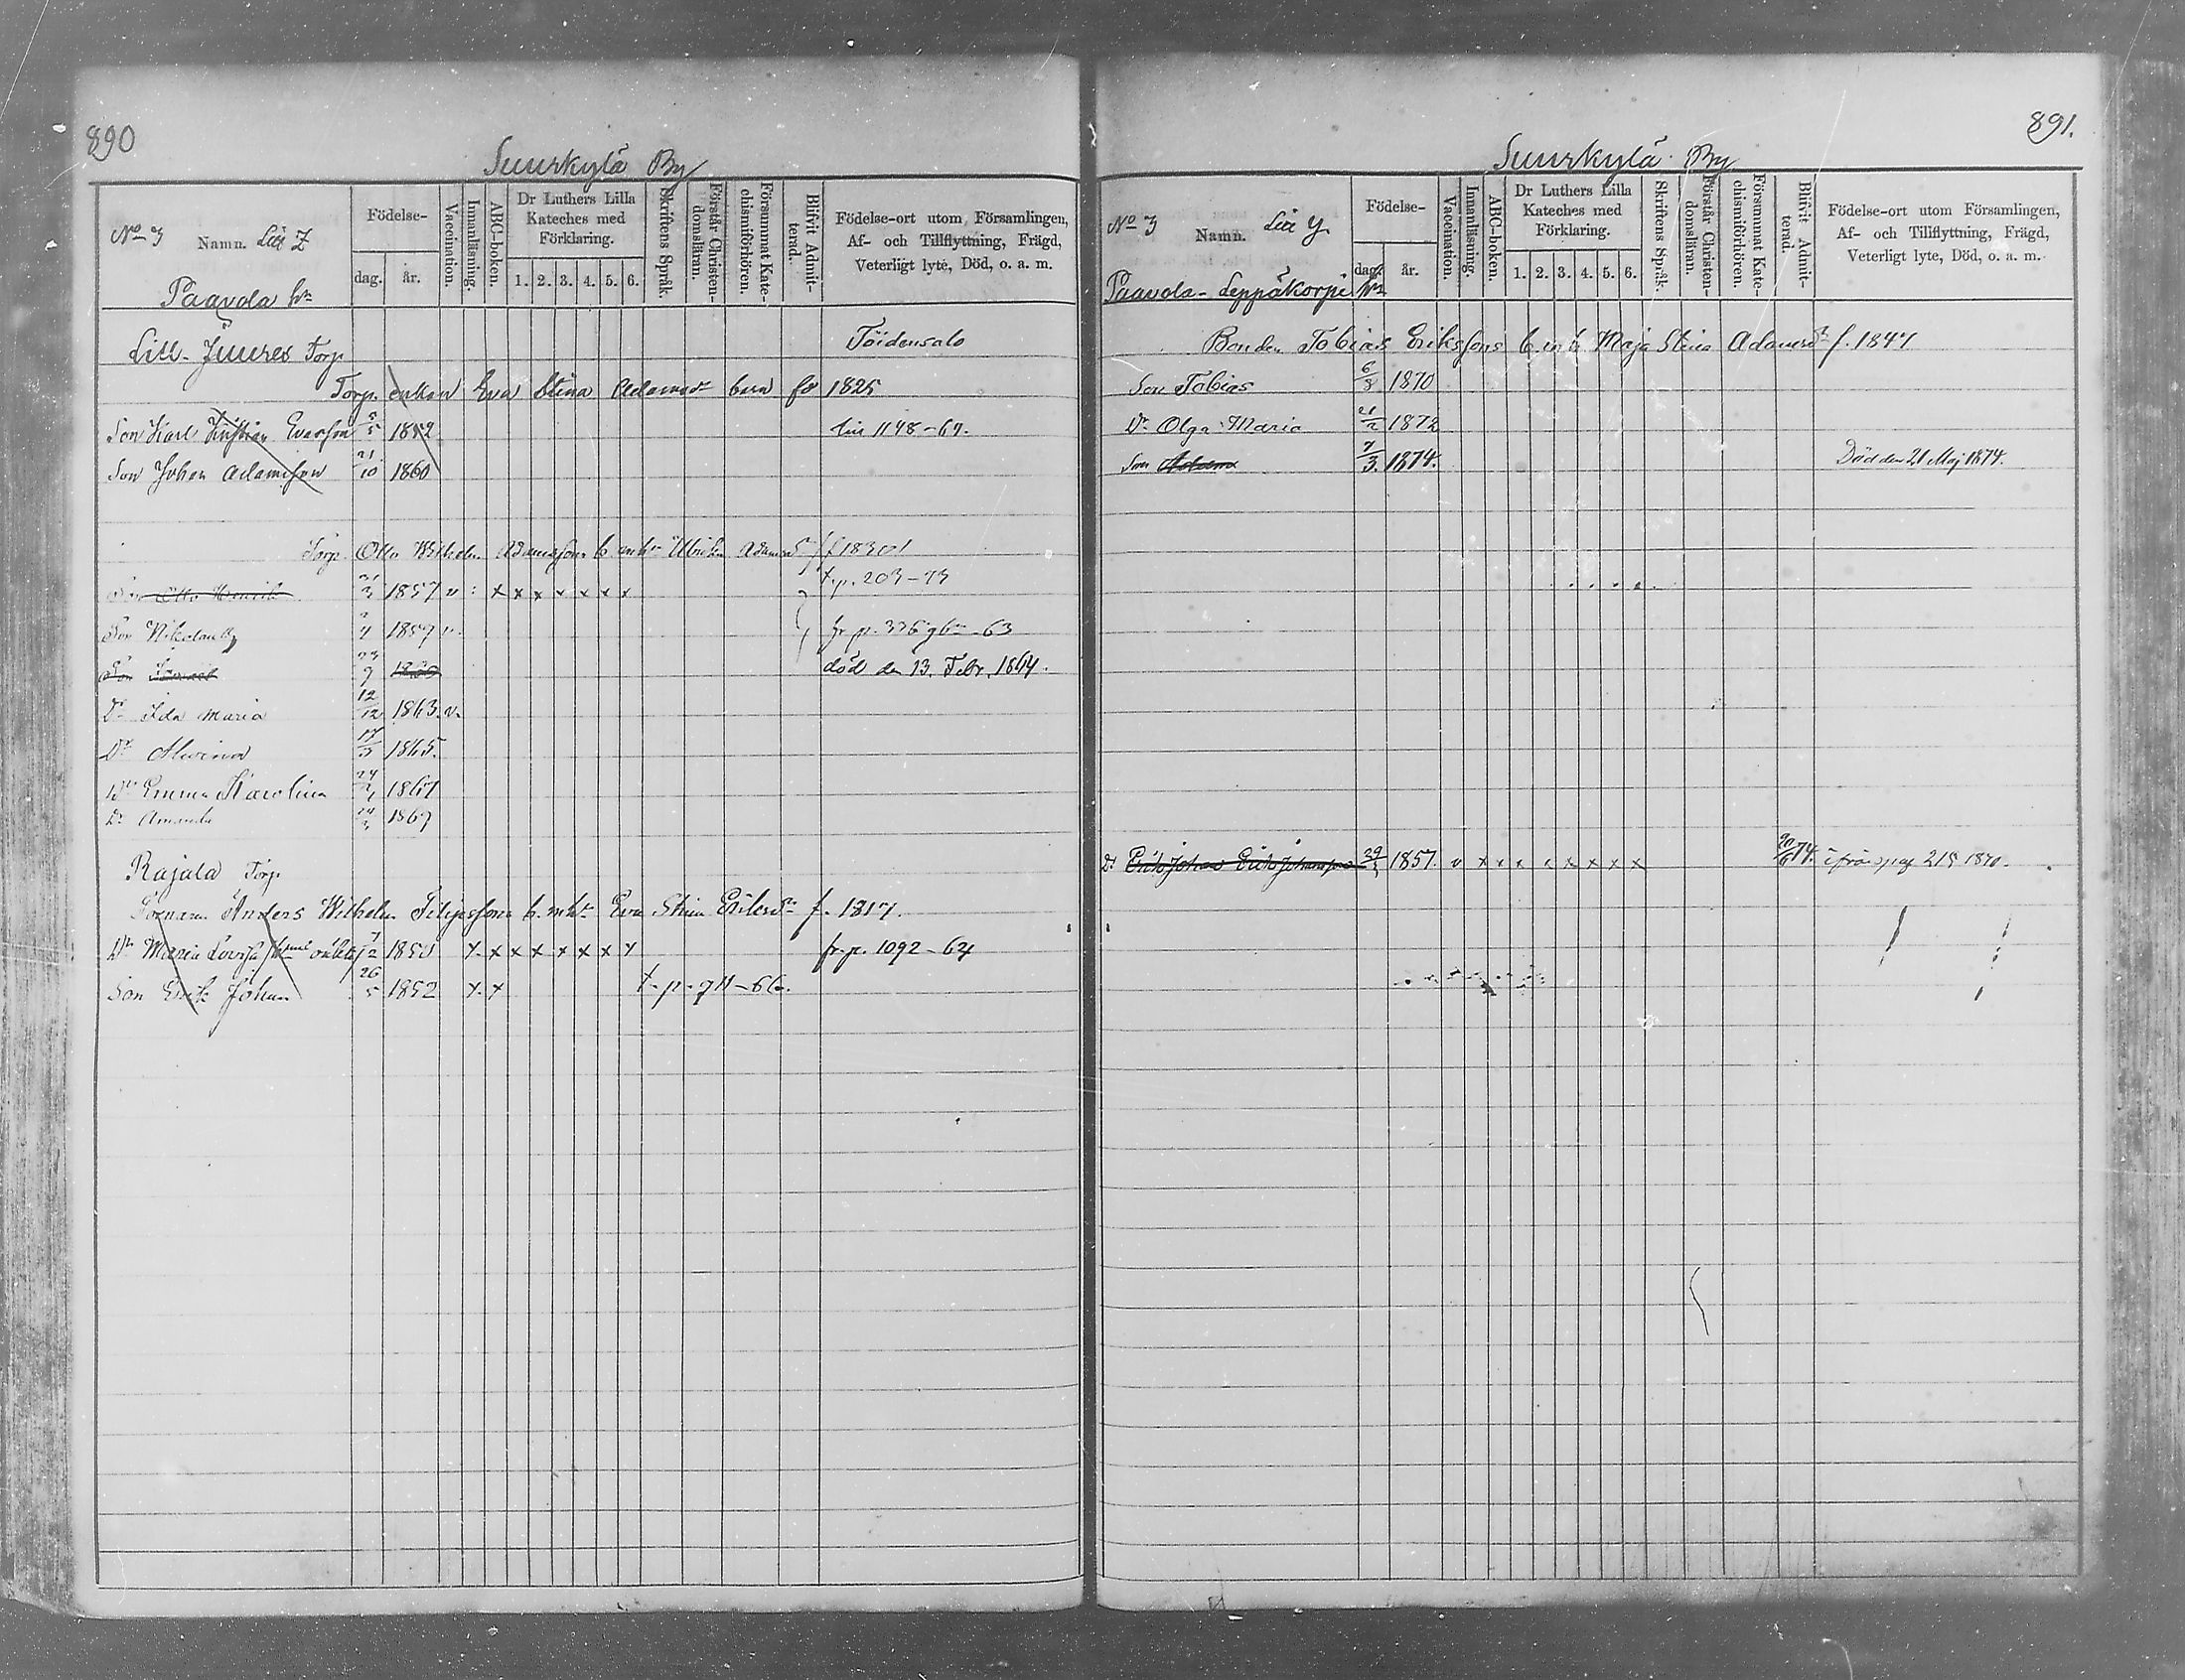 890
Suurkylä By
No 3 Namn. Litt Z
Födelse-
dag. år.
Vaccination.
Innanläsning.
ABC-boken.
Dr Luthers Lilla Kateches med Förklaring.
1. 2. 3. 4. 5. 6.
Skriftens Språk.
Förstår Christendomsläran.
Försummat Katechismiförhören.
Blifvit Admitterad.
Födelse-ort utom Församlingen, Af- och Tillflyttning, Frägd, Veterligt lyte, Död, o. a. m.
Paavola hn
Lill-Juures Torp Töidensalo
Torp. enkan Eva Stina Adamsdr barn fö 1825
Son Karl Kristian Evasson 5/5 1852 1148-67.
Son Johan Adamsson 21/10 1860
Torp. Otto Wilhelm Adamsson b. m hu Ulrika Adamsdr f 1830
Son Otto Henrik 1857 v : x x x x x x x t. p. 203-73
Son Nikolaus 1859 v. fr p. 336 63
Son 23/9 död den 13. Febr. 1864.
Dr Ida Maria 12/12 1863. v.
Dr Alvina 1865.
Dr Emma Karolina 1867
Dr Amanda 1869
Rajala Torp
Anders Wilhelm Filipsson b. m hu Eva Stina Eriksdr f. 1817.
Dr Maria Lovisa 1850 x x x x x x x x fr. p. 1092-64
Son Erik Johan 26/5 1852 x x t. p. 911-66.
891.
Suurkylä By
No 3 Namn. Litt Y.
Födelse-
dag. år.
Vaccination.
Innanläsning.
ABC-boken.
Dr Luthers Lilla Kateches med Förklaring.
1. 2. 3. 4. 5. 6.
Skriftens Språk.
Förstår Christendomsläran.
Försummat Katechismiförhören.
Blifvit Admitterad.
Födelse-ort utom Församlingen, Af- och Tillflyttning, Frägd, Veterligt lyte, Död, o. a. m.
Paavola-Leppäkorpi hn
Bonden Tobias Erikssons b. m h Maja Stina Adamsdr f. 1847
Son Tobias 6/8 1870
Dr Olga Maria 21/2 1872
Son 7/3. 1874. Död den 21 Maj 1874.
Erik Johan Erik Johansson 1857. v x x x x x x x x 74. ifrån pag 215 1870.